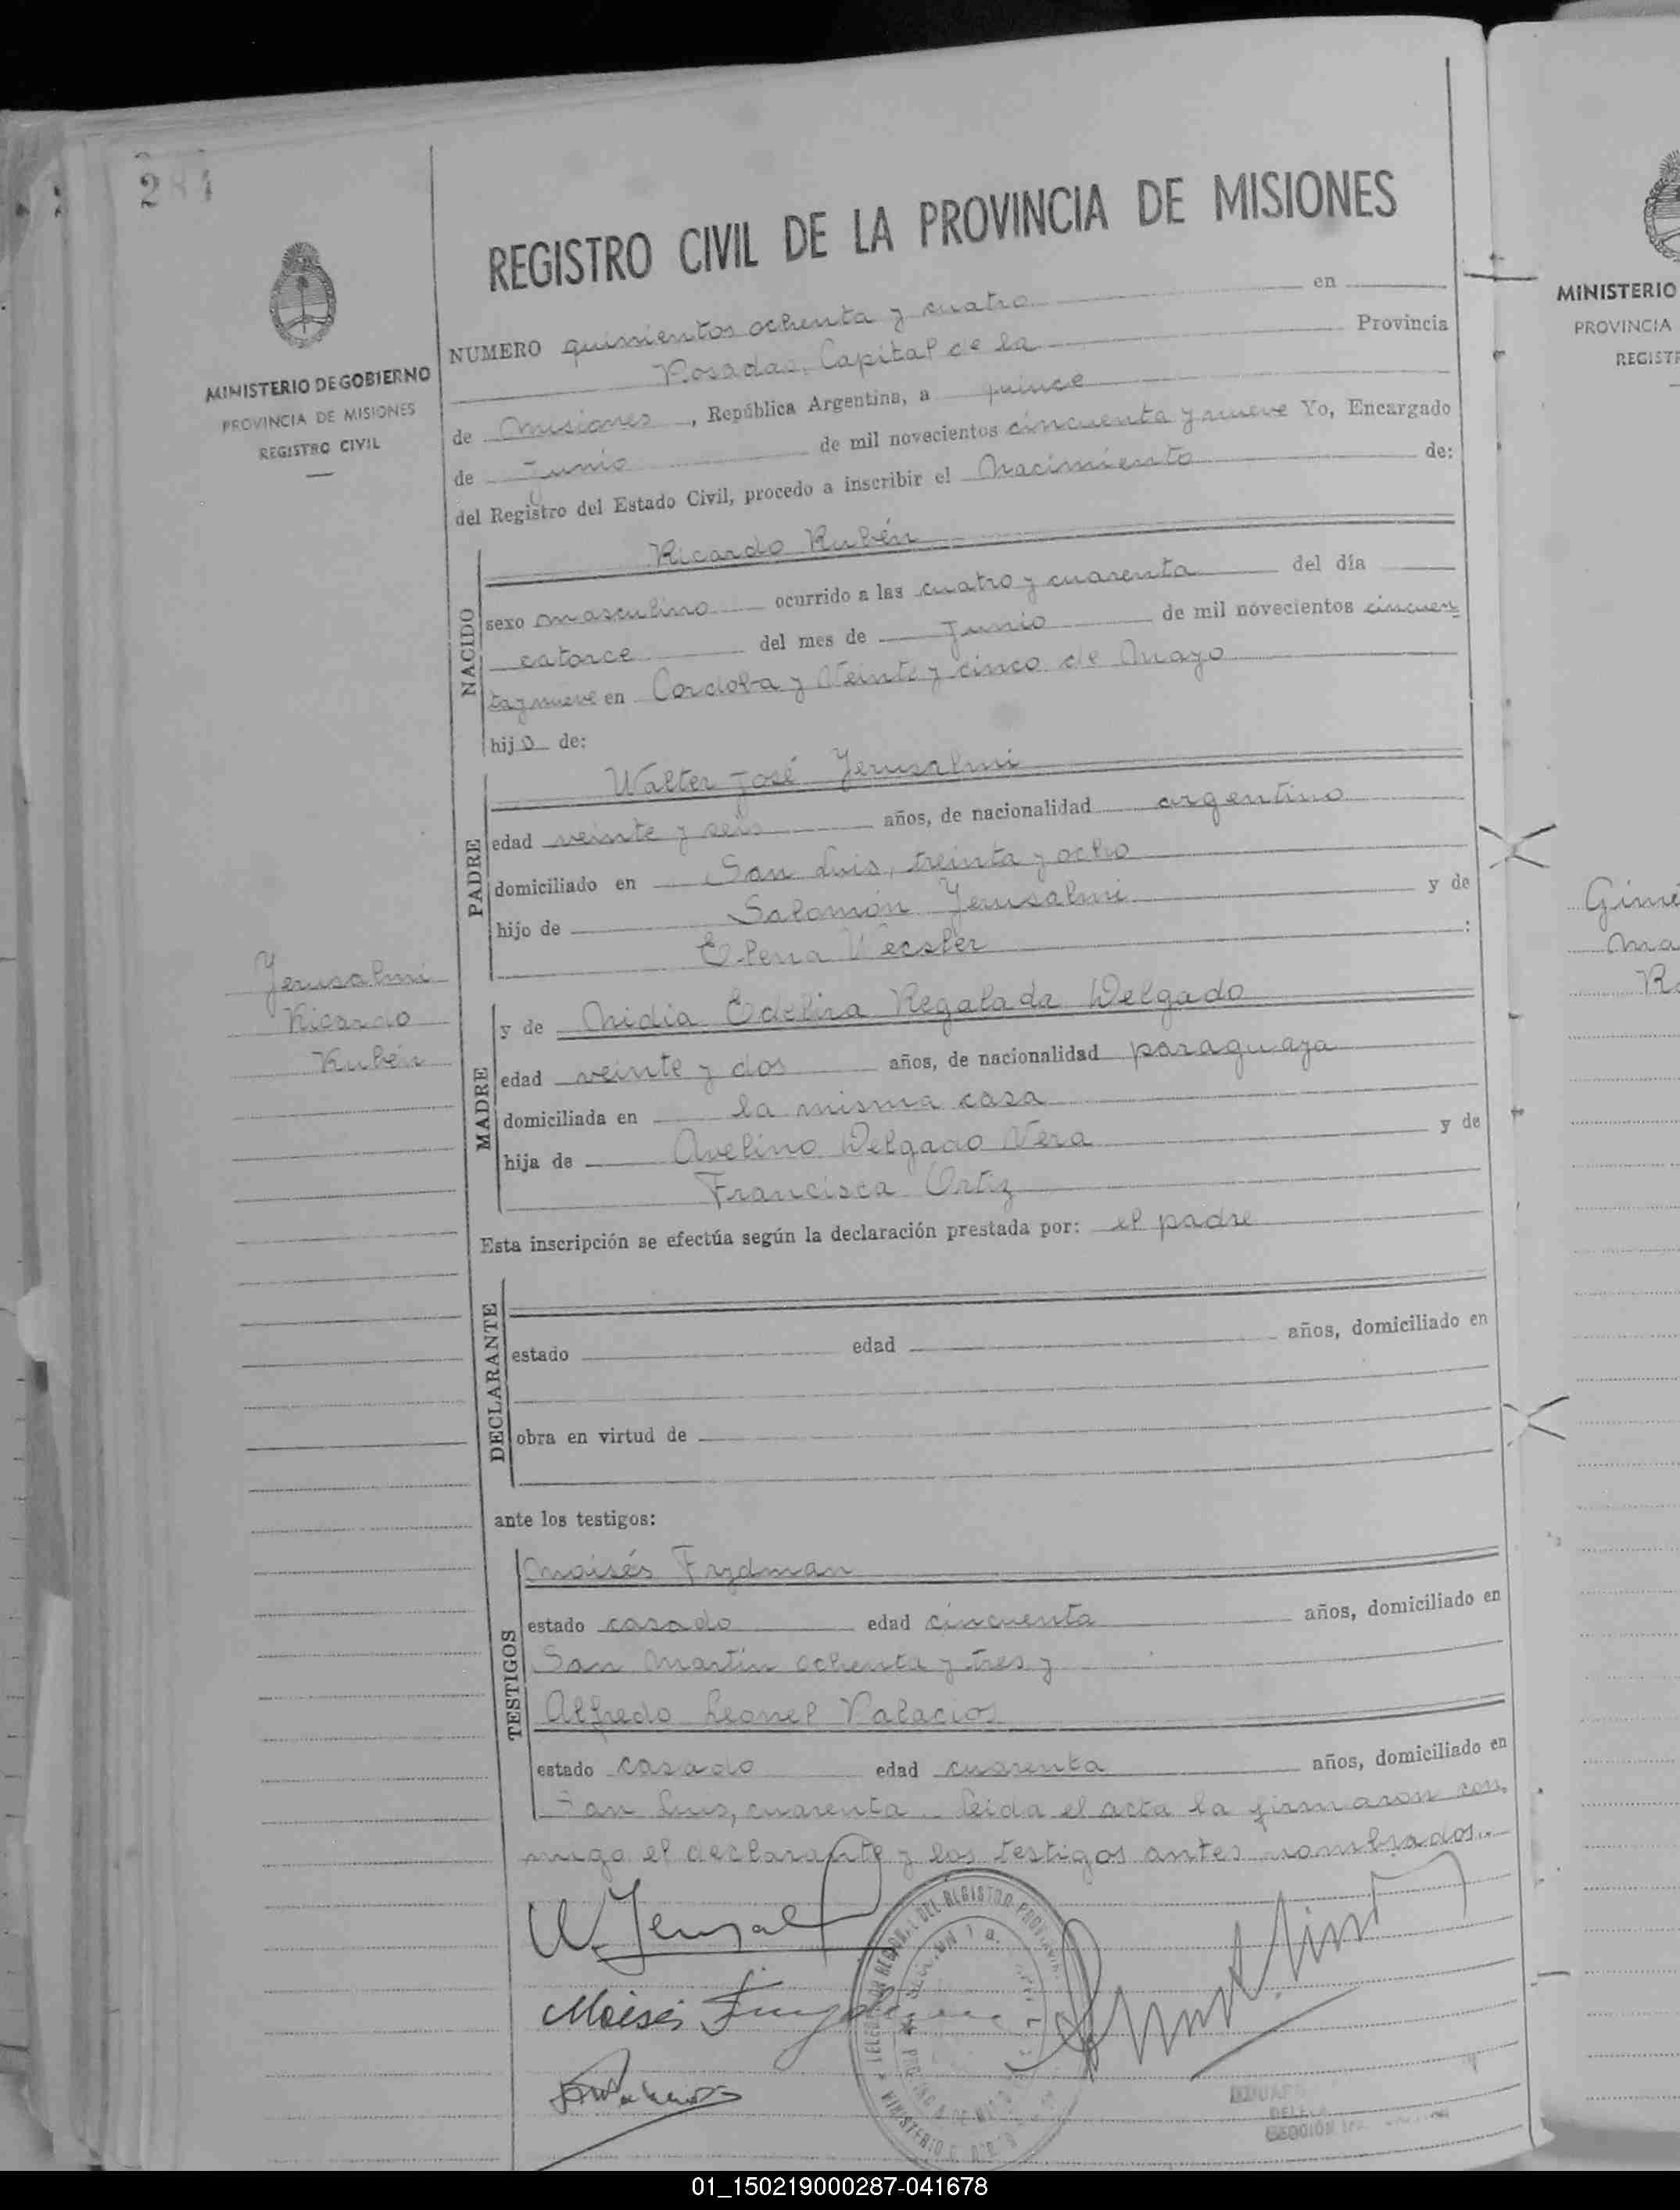 MINISTERIO DE GOBIERNO
PROVINCIA DE MISIONES
REGISTRO CIVIL
REGISTRO CIVIL DE LA PROVINCIA DE MISIONES
NUMERO quinientos ochenta y cuatro en
Posadas, Capital de la Provincia
de Misiones, República Argentina, a quince
de Junio de mil novecientos cincuenta y nueve Yo, Encargado
del Registro del Estado Civil, procedo a inscribir el Nacimiento de:
NACIDO
Ricardo Rubén
sexo masculino ocurrido a las cuatro y cuarenta del día
catorce del mes de Junio de mil novecientos cincuen
ta y nueve en Cordoba y Veinte y cinco de Mayo
hijo de:
PADRE
Walter José Jerusalmi
edad veinte y seis años, de nacionalidad argentino
domiciliado en San Luis, treinta y ocho
hijo de Salomón Jerusalmi y de
Elena Wecsler :
Jerusalmi
Ricardo
Rubén
MADRE
y de Nidia Edelira Regalada Delgado
edad veinte y dos años, de nacionalidad paraguaya
domiciliada en la misma casa
hija de Avelino Delgado Vera y de
Francisca Ortiz
Esta inscripción se efectúa según la declaración prestada por: el padre
DECLARANTE
estado edad años, domiciliado en
obra en virtud de
ante los testigos:
TESTIGOS
Moisés Frydman
estado casado edad cincuenta años, domiciliado en
San Martin ochenta y tres y
Alfredo Leonel Palacios
estado casado edad cuarenta años, domiciliado en
San Luis, cuarenta. Leida el acta la firmaron con
migo el declarante y los testigos antes nombrados..
Moisés
MINISTERIO
PROVINCIA
REGISTR
01_150219000287-041678